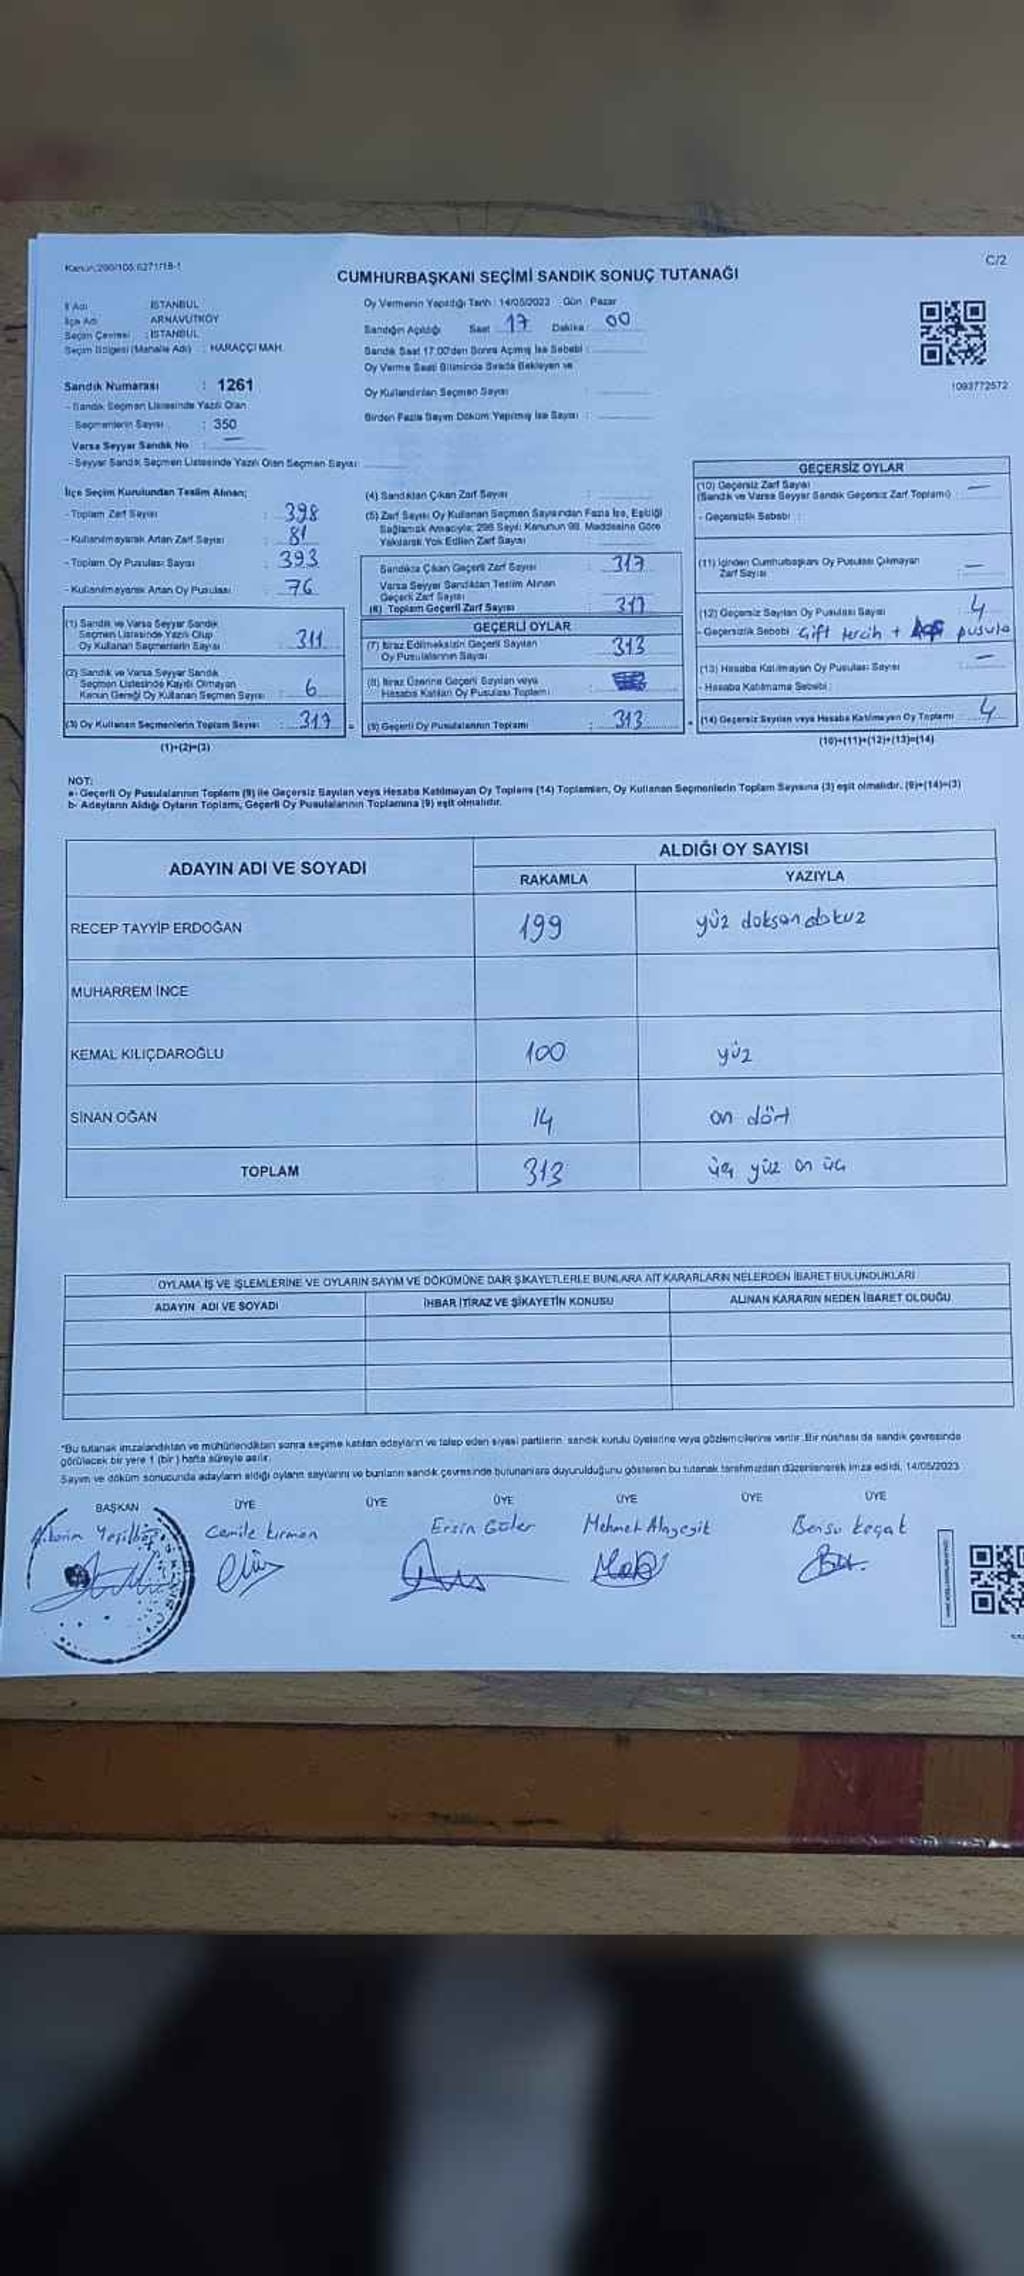 Kanun:298/105;6271/18-1
C/2
CUMHURBAŞKANI SEÇİMİ SANDIK SONUÇ TUTANAĞI
İl Adı : İSTANBUL
İlçe Adı : ARNAVUTKÖY
Seçim Çevresi : İSTANBUL
Seçim Bölgesi (Mahalle Adı) : HARAÇÇI MAH.
Oy Vermenin Yapıldığı Tarih : 14/05/2023 Gün : Pazar
Sandığın Açıldığı Saat : 17 Dakika : 00
Sandık Saat 17:00'den Sonra Açılmış İse Sebebi :
Oy Verme Saati Bitiminde Sırada Bekleyen ve
Oy Kullandırılan Seçmen Sayısı :
Birden Fazla Sayım Döküm Yapılmış İse Sayısı :
1093772572
Sandık Numarası : 1261
- Sandık Seçmen Listesinde Yazılı Olan
Seçmenlerin Sayısı : 350
Varsa Seyyar Sandık No : —
- Seyyar Sandık Seçmen Listesinde Yazılı Olan Seçmen Sayısı
İlçe Seçim Kurulundan Teslim Alınan;
- Toplam Zarf Sayısı : 398
- Kullanılmayarak Artan Zarf Sayısı : 81
- Toplam Oy Pusulası Sayısı : 393
- Kullanılmayarak Artan Oy Pusulası : 76
(1) Sandık ve Varsa Seyyar Sandık
Seçmen Listesinde Yazılı Olup
Oy Kullanan Seçmenlerin Sayısı : 311
(2) Sandık ve Varsa Seyyar Sandık
Seçmen Listesinde Kayıtlı Olmayan
Kanun Gereği Oy Kullanan Seçmen Sayısı : 6
(3) Oy Kullanan Seçmenlerin Toplam Sayısı : 317
(1)+(2)=(3)
(4) Sandıktan Çıkan Zarf Sayısı :
(5) Zarf Sayısı Oy Kullanan Seçmen Sayısından Fazla İse, Eşitliği
Sağlamak Amacıyla; 298 Sayılı Kanunun 98. Maddesine Göre
Yakılarak Yok Edilen Zarf Sayısı :
Sandıkta Çıkan Geçerli Zarf Sayısı : 317
Varsa Seyyar Sandıktan Teslim Alınan
Geçerli Zarf Sayısı :
(6) Toplam Geçerli Zarf Sayısı : 317
GEÇERLİ OYLAR
(7) İtiraz Edilmeksizin Geçerli Sayılan
Oy Pusulalarının Sayısı : 313
(8) İtiraz Üzerine Geçerli Sayılan veya
Hesaba Katılan Oy Pusulası Toplamı :
(9) Geçerli Oy Pusulalarının Toplamı : 313
GEÇERSİZ OYLAR
(10) Geçersiz Zarf Sayısı
(Sandık ve Varsa Seyyar Sandık Geçersiz Zarf Toplamı) : —
- Geçersizlik Sebebi :
(11) İçinden Cumhurbaşkanı Oy Pusulası Çıkmayan
Zarf Sayısı : —
(12) Geçersiz Sayılan Oy Pusulası Sayısı : 4
- Geçersizlik Sebebi : Çift tercih + pusula
(13) Hesaba Katılmayan Oy Pusulası Sayısı : —
- Hesaba Katılmama Sebebi :
(14) Geçersiz Sayılan veya Hesaba Katılmayan Oy Toplamı : 4
(10)+(11)+(12)+(13)=(14)
NOT:
a- Geçerli Oy Pusulalarının Toplamı (9) ile Geçersiz Sayılan veya Hesaba Katılmayan Oy Toplamı (14) Toplamları, Oy Kullanan Seçmenlerin Toplam Sayısına (3) eşit olmalıdır. (9)+(14)=(3)
b- Adayların Aldığı Oyların Toplamı, Geçerli Oy Pusulalarının Toplamına (9) eşit olmalıdır.
ADAYIN ADI VE SOYADI
ALDIĞI OY SAYISI
RAKAMLA YAZIYLA
RECEP TAYYİP ERDOĞAN 199 yüz doksan dokuz
MUHARREM İNCE
KEMAL KILIÇDAROĞLU 100 yüz
SİNAN OĞAN 14 on dört
TOPLAM 313 üç yüz on üç
OYLAMA İŞ VE İŞLEMLERİNE VE OYLARIN SAYIM VE DÖKÜMÜNE DAİR ŞİKAYETLERLE BUNLARA AİT KARARLARIN NELERDEN İBARET BULUNDUKLARI
ADAYIN ADI VE SOYADI İHBAR İTİRAZ VE ŞİKAYETİN KONUSU ALINAN KARARIN NEDEN İBARET OLDUĞU
*Bu tutanak imzalandıktan ve mühürlendikten sonra seçime katılan adayların ve talep eden siyasi partilerin sandık kurulu üyelerine veya gözlemcilerine verilir. Bir nüshası da sandık çevresinde
görülecek bir yere 1 (bir) hafta süreyle asılır.
Sayım ve döküm sonucunda adayların aldığı oyların sayılarını ve bunların sandık çevresinde bulunanlara duyurulduğunu gösteren bu tutanak tarafımızdan düzenlenerek imza edildi. 14/05/2023
BAŞKAN ÜYE ÜYE ÜYE ÜYE ÜYE ÜYE
Cemile Kırman Ersin Güler Mehmet Alageyik Bensu Keçat